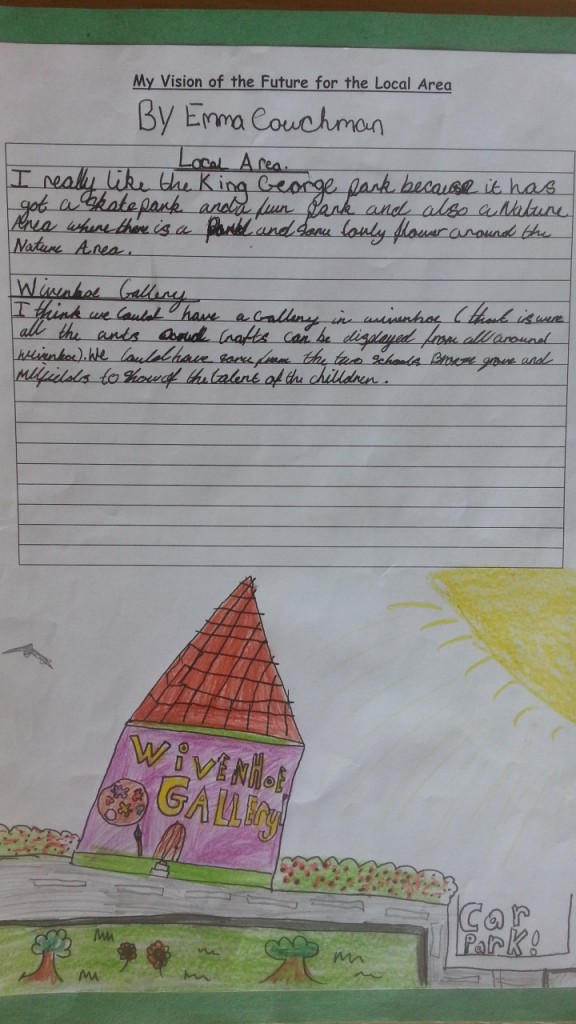 My Vision of the Future for the Local Area
By Emma Couchman
Local Area.
I really like the King George park because it has
got a skatepark and a fun park and also a Nature
Area where there is a Pond and some lovly flower around the
Nature Area.
Wivenhoe Gallery
I think we could have a Gallery in wivenhoe (that is were
all the arts and Crafts can be displayed from all around
wivenhoe). We could have some from the two schools Broome grove and
Millfields to show of the talent of the chilldren.
WIVENHOE
GALLERY
Car
Park!